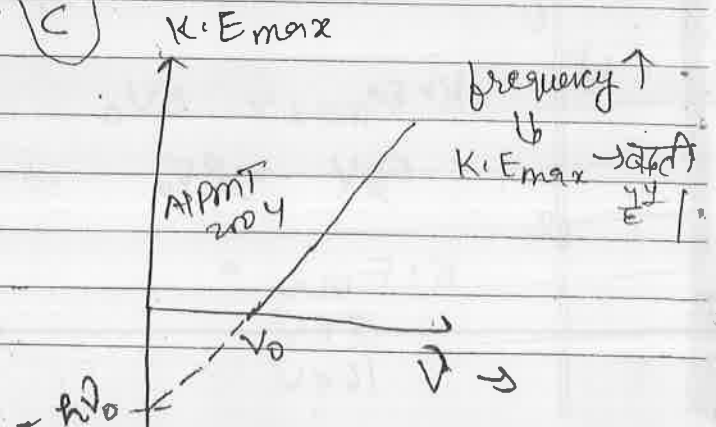 C
K.E max
frequency ↑
⇓
K.E max → बढ़ती
AIPMT
2004
ν₀
ν →
- hν₀